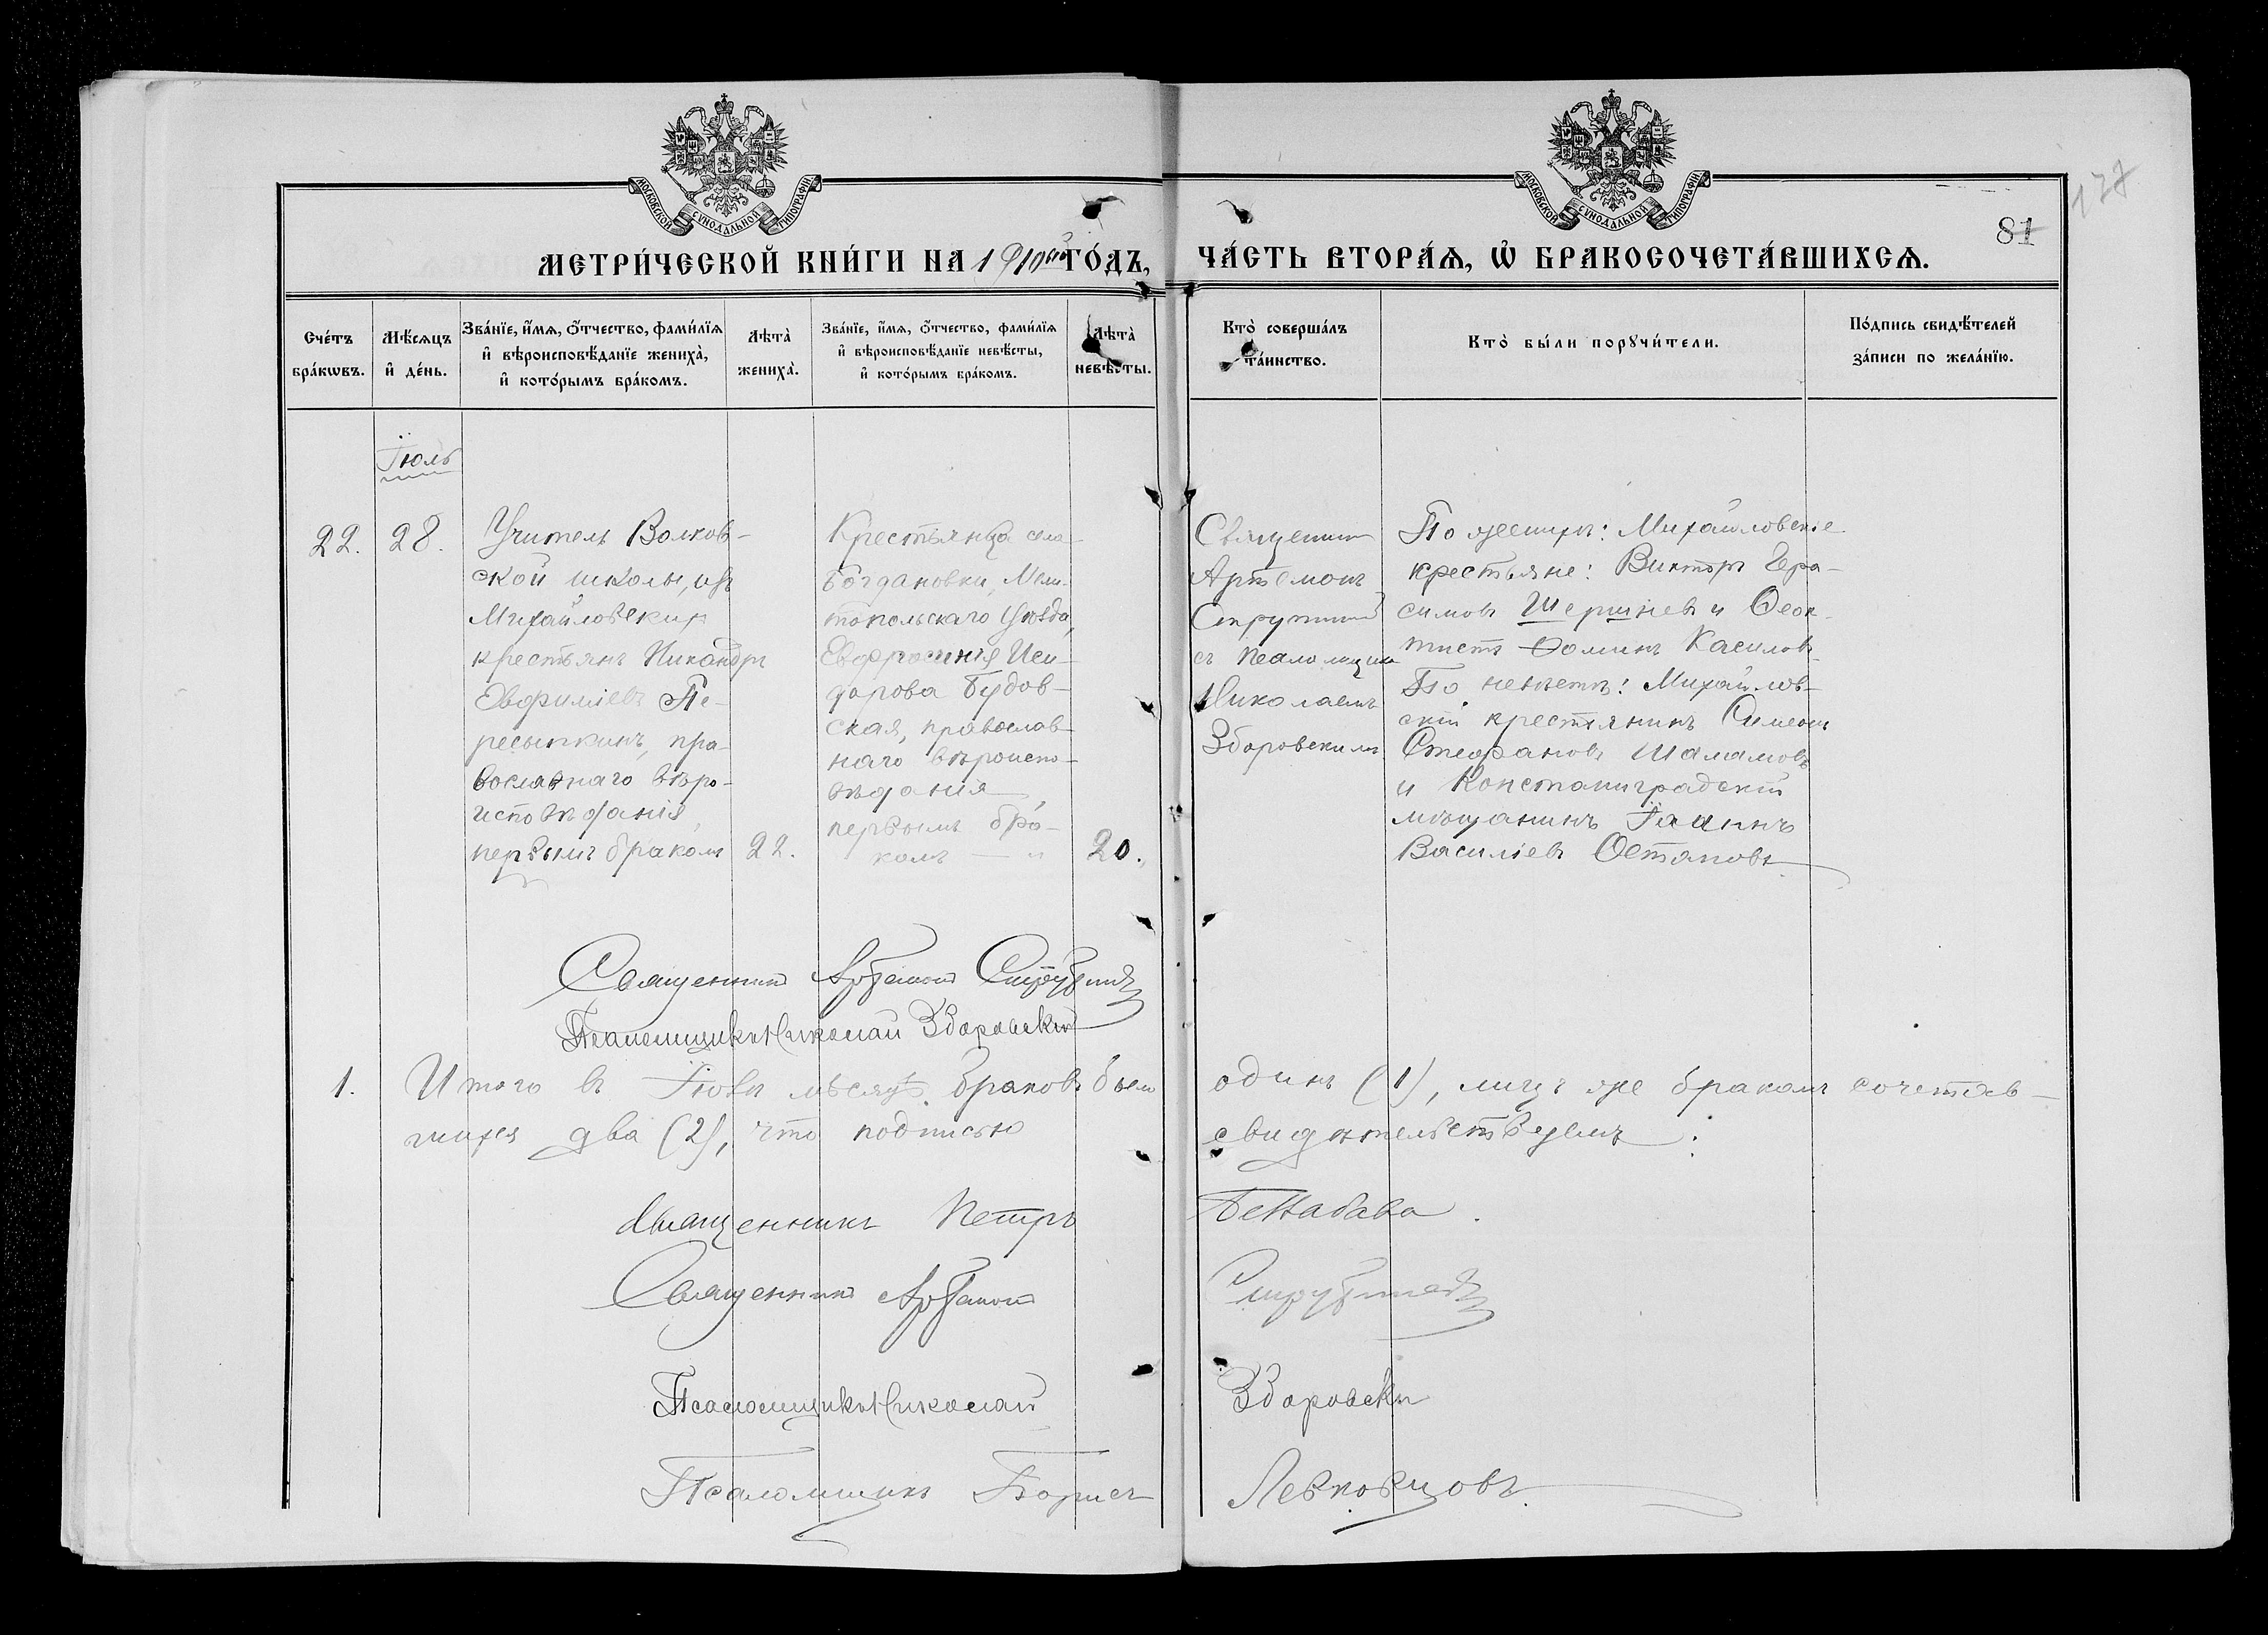 МОСКОВСКОЙ СУНОДАЛЬНОЙ ТИПОГРАФІИ
МОСКОВСКОЙ СУНОДАЛЬНОЙ ТИПОГРАФІИ
127
81
МЕТРИ́ЧЕСКОЙ КНИ́ГИ НА 1910ый ГО́ДЪ,
ЧА́СТЬ ВТОРА́Ѧ, Ѽ БРАКОСОЧЕТА́ВШИХСѦ.
Сче́тъ
бра́кѡвъ.
Мѣ́сѧцъ
и҆ де́нь.
Зва́нїе, и҆́мѧ, ѻ҆́тчество, фами́лїѧ
и҆ вѣроисповѣ́данїе жениха̀,
и҆ кото́рымъ бра́комъ.
Лѣта̀
жениха̀.
Зва́нїе, и҆́мѧ, ѻ҆́тчество, фами́лїѧ
и҆ вѣроисповѣ́данїе невѣ́сты,
и҆ кото́рымъ бра́комъ.
Лѣта̀
невѣ́сты.
Кто̀ соверша́лъ
та́инство.
Кто̀ бы́ли порꙋчи́тели.
По́дпись свидѣ́телей
за́писи по жела́нїю.
Іюль
22.
28.
Учитель Волков-
ской школы, изъ
Михайловских
крестьянъ Никандръ
Евфиміевъ Пе-
ресыпкинъ, пра-
вославнаго вѣро-
исповѣданія,
первымъ бракомъ
22.
Крестьянка села
Богдановки, Мели-
топольскаго уѣзда,
Евфросинія Иси-
дорова Будов-
ская, православ-
наго вѣроиспо-
вѣданія,
первымъ бра-
комъ — "
20.
Священникъ
Артемонъ
съ псаломщикомъ
Николаемъ
Здоровскимъ
По женихѣ: Михайловскіе
крестьяне: Викторъ Гера-
симовъ Шершневъ и Ѳеок-
тистъ Ѳоминъ Касиловъ
По невѣстѣ: Михайлов-
скій крестьянинъ Симеонъ
Стефановъ Шаламовъ
и Константиноградскій
мѣщанинъ Іоаннъ
Василіевъ Остаповъ
Священникъ Артемонъ
Псаломщикъ Николай Здоровскій
1.
Итого въ Іюлѣ мѣсяцѣ браковъ было
одинъ (1), лицъ же бракомъ сочетав-
шихся два (2), что подписью
свидѣтельствуемъ:
Священникъ Петръ
Священникъ Артемонъ
Псаломщикъ Николай
Здоровскій
Псаломщикъ Борисъ
Левковцовъ